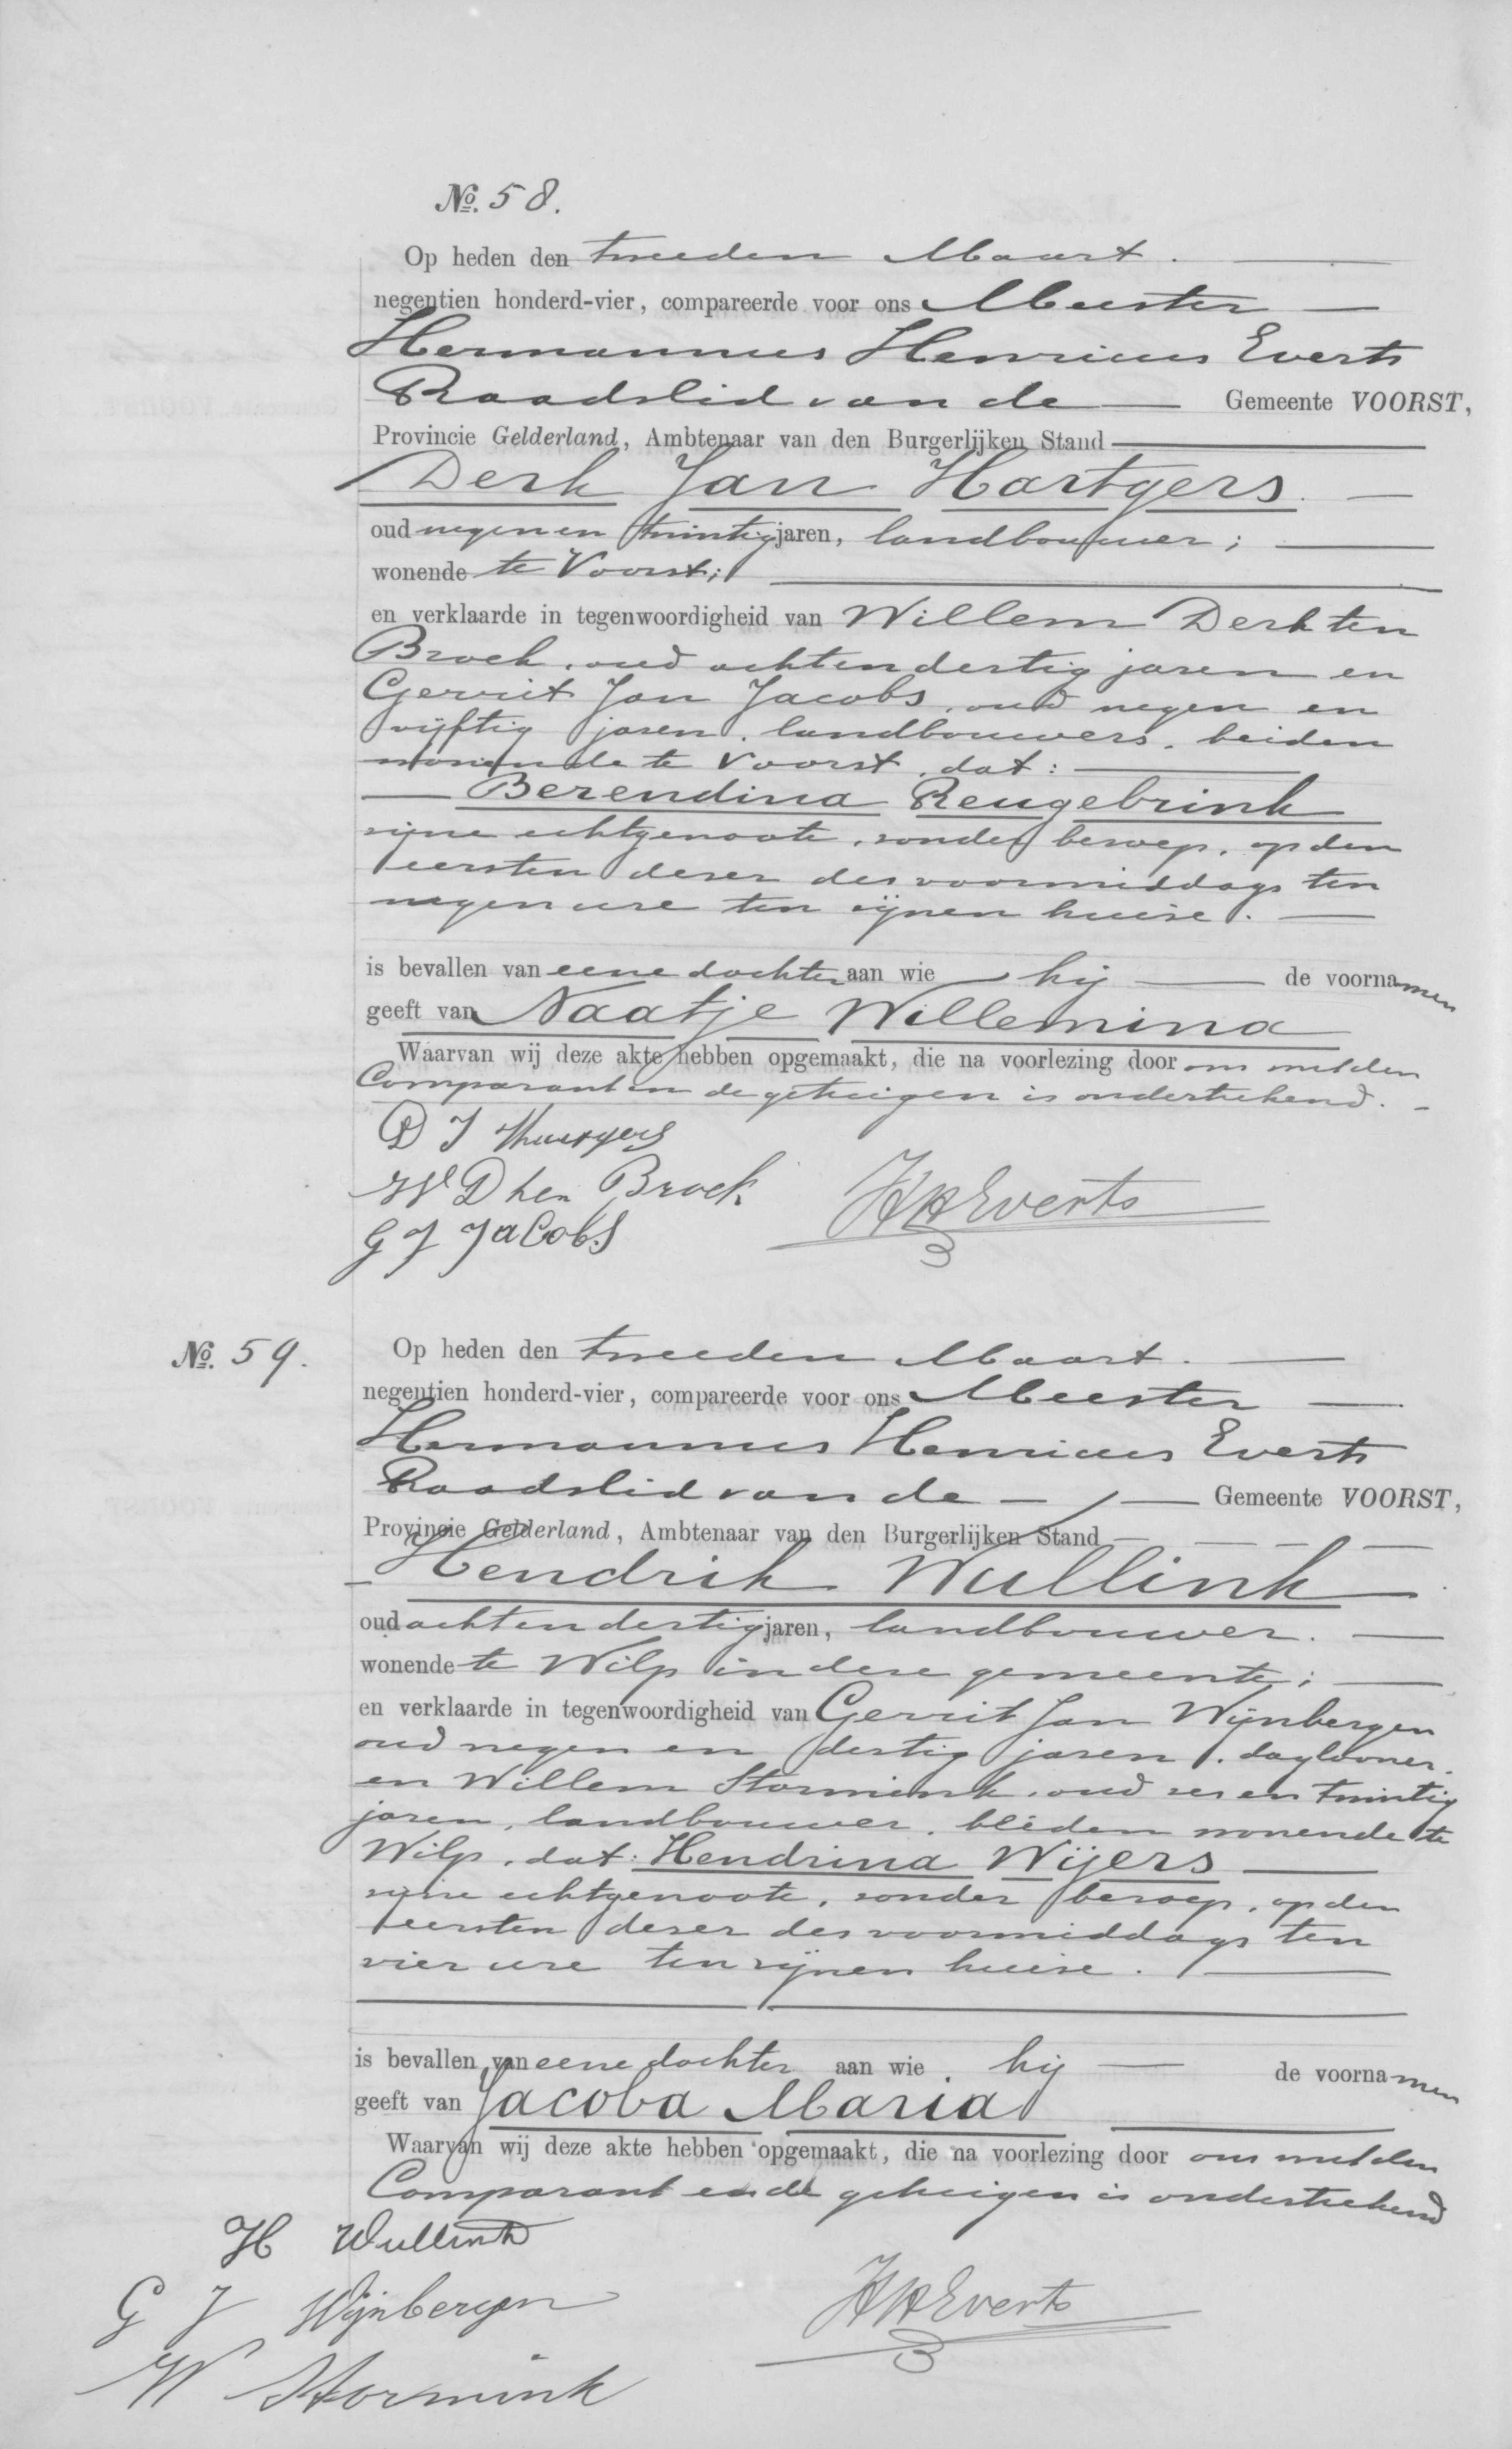 No. 58.
Op heden den tweeden Maart.
negentien honderd-vier, compareerde voor ons Meester
Hermannus Henricus Everts
Raadslid van de Gemeente VOORST,
Provincie Gelderland, Ambtenaar van den Burgerlijken Stand
Derk Jan Hartgers.
oud negen en twintig jaren, landbouwer;
wonende te Voorst;
en verklaarde in tegenwoordigheid van Willem Derk ten
Broek, oud acht en dertig jaren en
Gerrit Jan Jacobs, oud negen en
vijftig jaren, landbouwers, beiden
wonende te Voorst, dat:
Berendina Reugebrink
zijne echtgenoote, zonder beroep, op den
eersten dezer des voormiddags ten
negen ure ten zijnen huize.
is bevallen van eene dochter aan wie hij de voornamen
geeft van Naatje Willemina
Waarvan wij deze akte hebben opgemaakt, die na voorlezing door ons met den
Comparant en de getuigen is onderteekend.
D J Hartgers
W D ten Broek
G J Jacobs
HHEverts
No. 59.
Op heden den tweeden Maart.
negentien honderd-vier, compareerde voor ons Meester
Hermannus Henricus Everts
Raadslid van de Gemeente VOORST,
Provincie Gelderland, Ambtenaar van den Burgerlijken Stand
Hendrik Wullink
oud acht en dertig jaren, landbouwer.
wonende te Wilp in deze gemeente;
en verklaarde in tegenwoordigheid van Gerrit Jan Wijnbergen
oud negen en dertig jaren, daglooner.
en Willem Stormink, oud zes en twintig
jaren, landbouwer, beiden wonende te
Wilp, dat: Hendrina Wijers
zijne echtgenoote, zonder beroep, op den
eersten dezer des voormiddags ten
vier ure ten zijnen huize.
is bevallen van eene dochter aan wie hij de voornamen
geeft van Jacoba Maria
Waarvan wij deze akte hebben opgemaakt, die na voorlezing door ons met den
Comparant en de getuigen is onderteekend
H Wullink
G J Wijnbergen
W Stormink
HHEverts